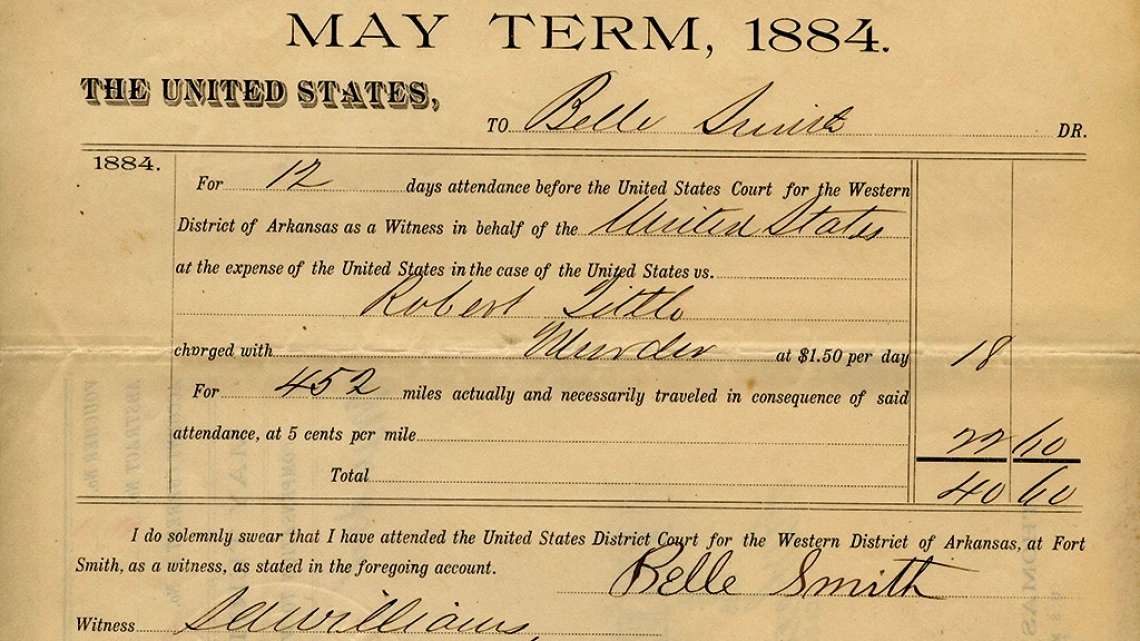 MAY TERM, 1884.
THE UNITED STATES,
TO Belle Smith DR.
1884.
For 12 days attendance before the United States Court for the Western
District of Arkansas as a Witness in behalf of the United States
at the expense of the United States in the case of the United States vs.
Robert Tittle
charged with Murder at $1.50 per day 18
For 452 miles actually and necessarily traveled in consequence of said
attendance, at 5 cents per mile 22 60
Total 40 60
I do solemnly swear that I have attended the United States District Court for the Western District of Arkansas, at Fort
Smith, as a witness, as stated in the foregoing account.
Belle Smith
Witness Williams